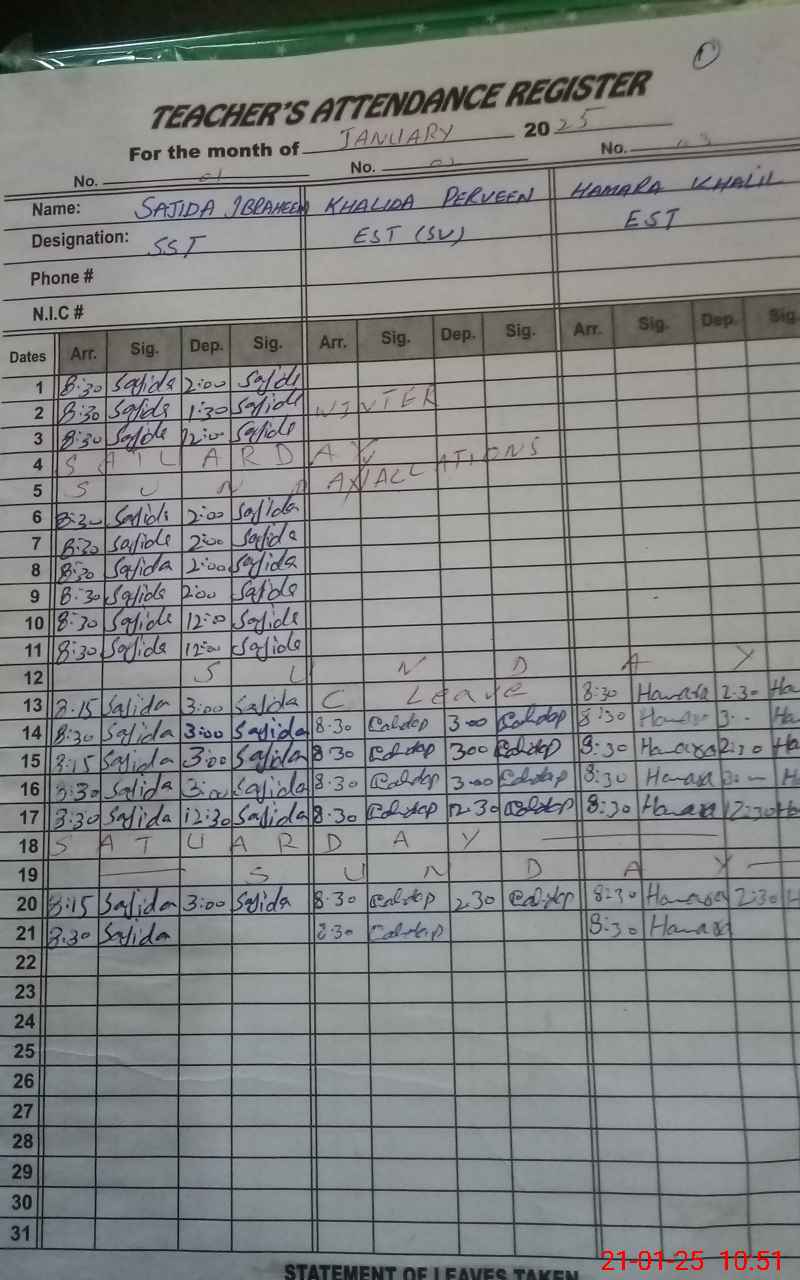 TEACHER'S ATTENDANCE REGISTER
For the month of JANUARY 2025
No. 01 No. 02 No. 03
Name: SAJIDA IBRAHEEM KHALIDA PERVEEN HAMARA KHALIL
Designation: SST EST (SV) EST
Phone #
N.I.C #
Dates Arr. Sig. Dep. Sig. Arr. Sig. Dep. Sig. Arr. Sig. Dep. Sig.
1 8:30 Sajida 2:00 Sajida
2 8:30 Sajida 1:30 Sajida WINTER
3 8:30 Sajida 12:00 Sajida
4 SATUARDAY
5 SUN VACALLATIONS
6 8:30 Sajida 2:00 Sajida
7 8:30 Sajida 2:00 Sajida
8 8:30 Sajida 2:00 Sajida
9 8:30 Sajida 2:00 Sajida
10 8:30 Sajida 12:00 Sajida
11 8:30 Sajida 12:00 Sajida
12 SUNDAY
13 8:15 Sajida 3:00 Sajida C Leave 8:30 Hamara 2:30 Ha
14 8:30 Sajida 3:00 Sajida 8:30 3:00 8:30 Hamara 3:00 Ha
15 8:15 Sajida 3:00 Sajida 8:30 3:00 8:30 Hamara 2:30 Ha
16 8:30 Sajida 3:00 Sajida 8:30 3:00 8:30 Hamara 3:00 H
17 8:30 Sajida 12:30 Sajida 8:30 12:30 8:30 Hamara 12:30 Ha
18 SATUARDAY
19 SUNDAY
20 8:15 Sajida 3:00 Sajida 8:30 2:30 8:30 Hamara 2:30 H
21 8:30 Sajida 8:30 8:30 Hamara
22
23
24
25
26
27
28
29
30
31
STATEMENT OF LEAVES TAKEN
21-01-25 10:51